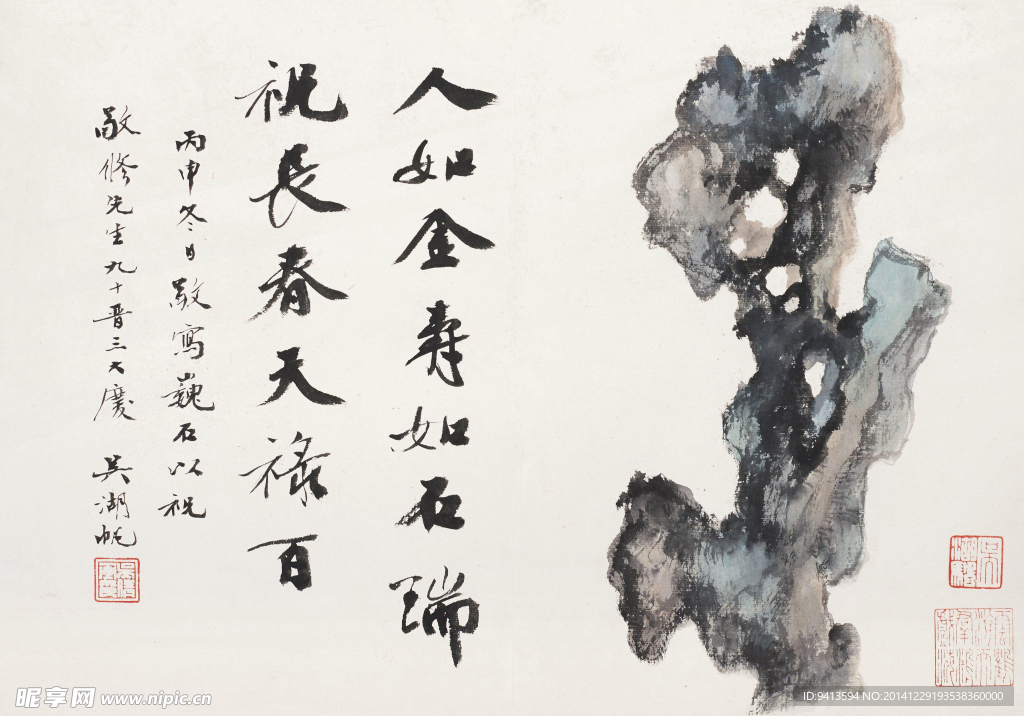 人如金壽如石瑞
祝長春天祿百
丙申冬日敬寫巍石以祝
敬修先生九十晋三大慶 吳湖帆
昵享网 www.nipic.cn
ID:9413594 NO:20141229193538360000